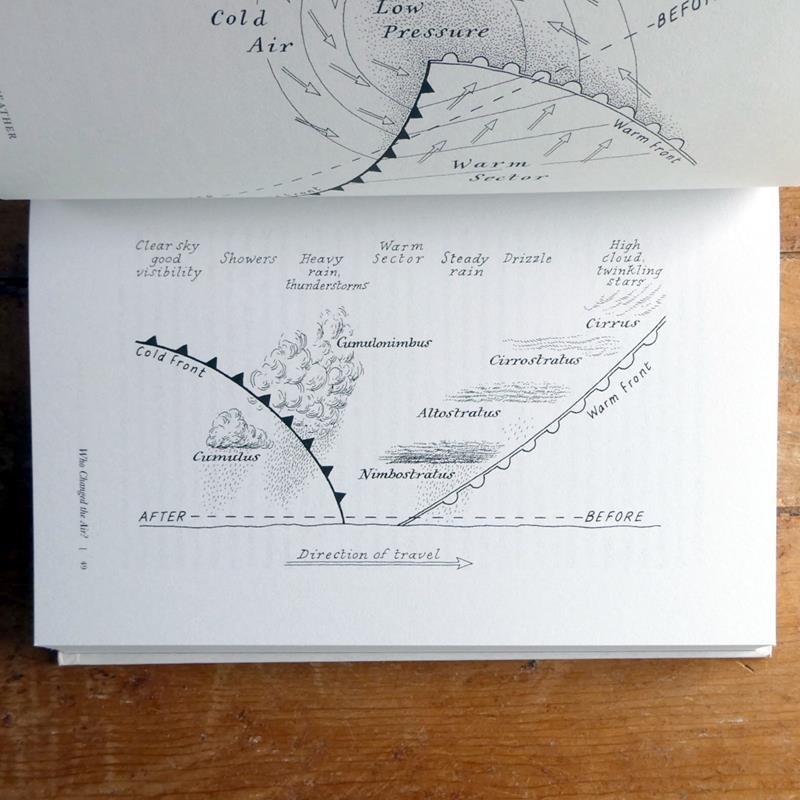 Cold
Air
Low
Pressure
BEFORE
Warm Front
Warm
Sector
Clear sky
good
visibility
Showers
Heavy
rain,
thunderstorms
Warm
Sector
Steady
rain
Drizzle
High
cloud,
twinkling
stars
Cirrus
Cumulonimbus
Cold Front
Cirrostratus
Warm Front
Altostratus
Cumulus
Nimbostratus
AFTER
BEFORE
Direction of travel
Who Changed the Air? | 49